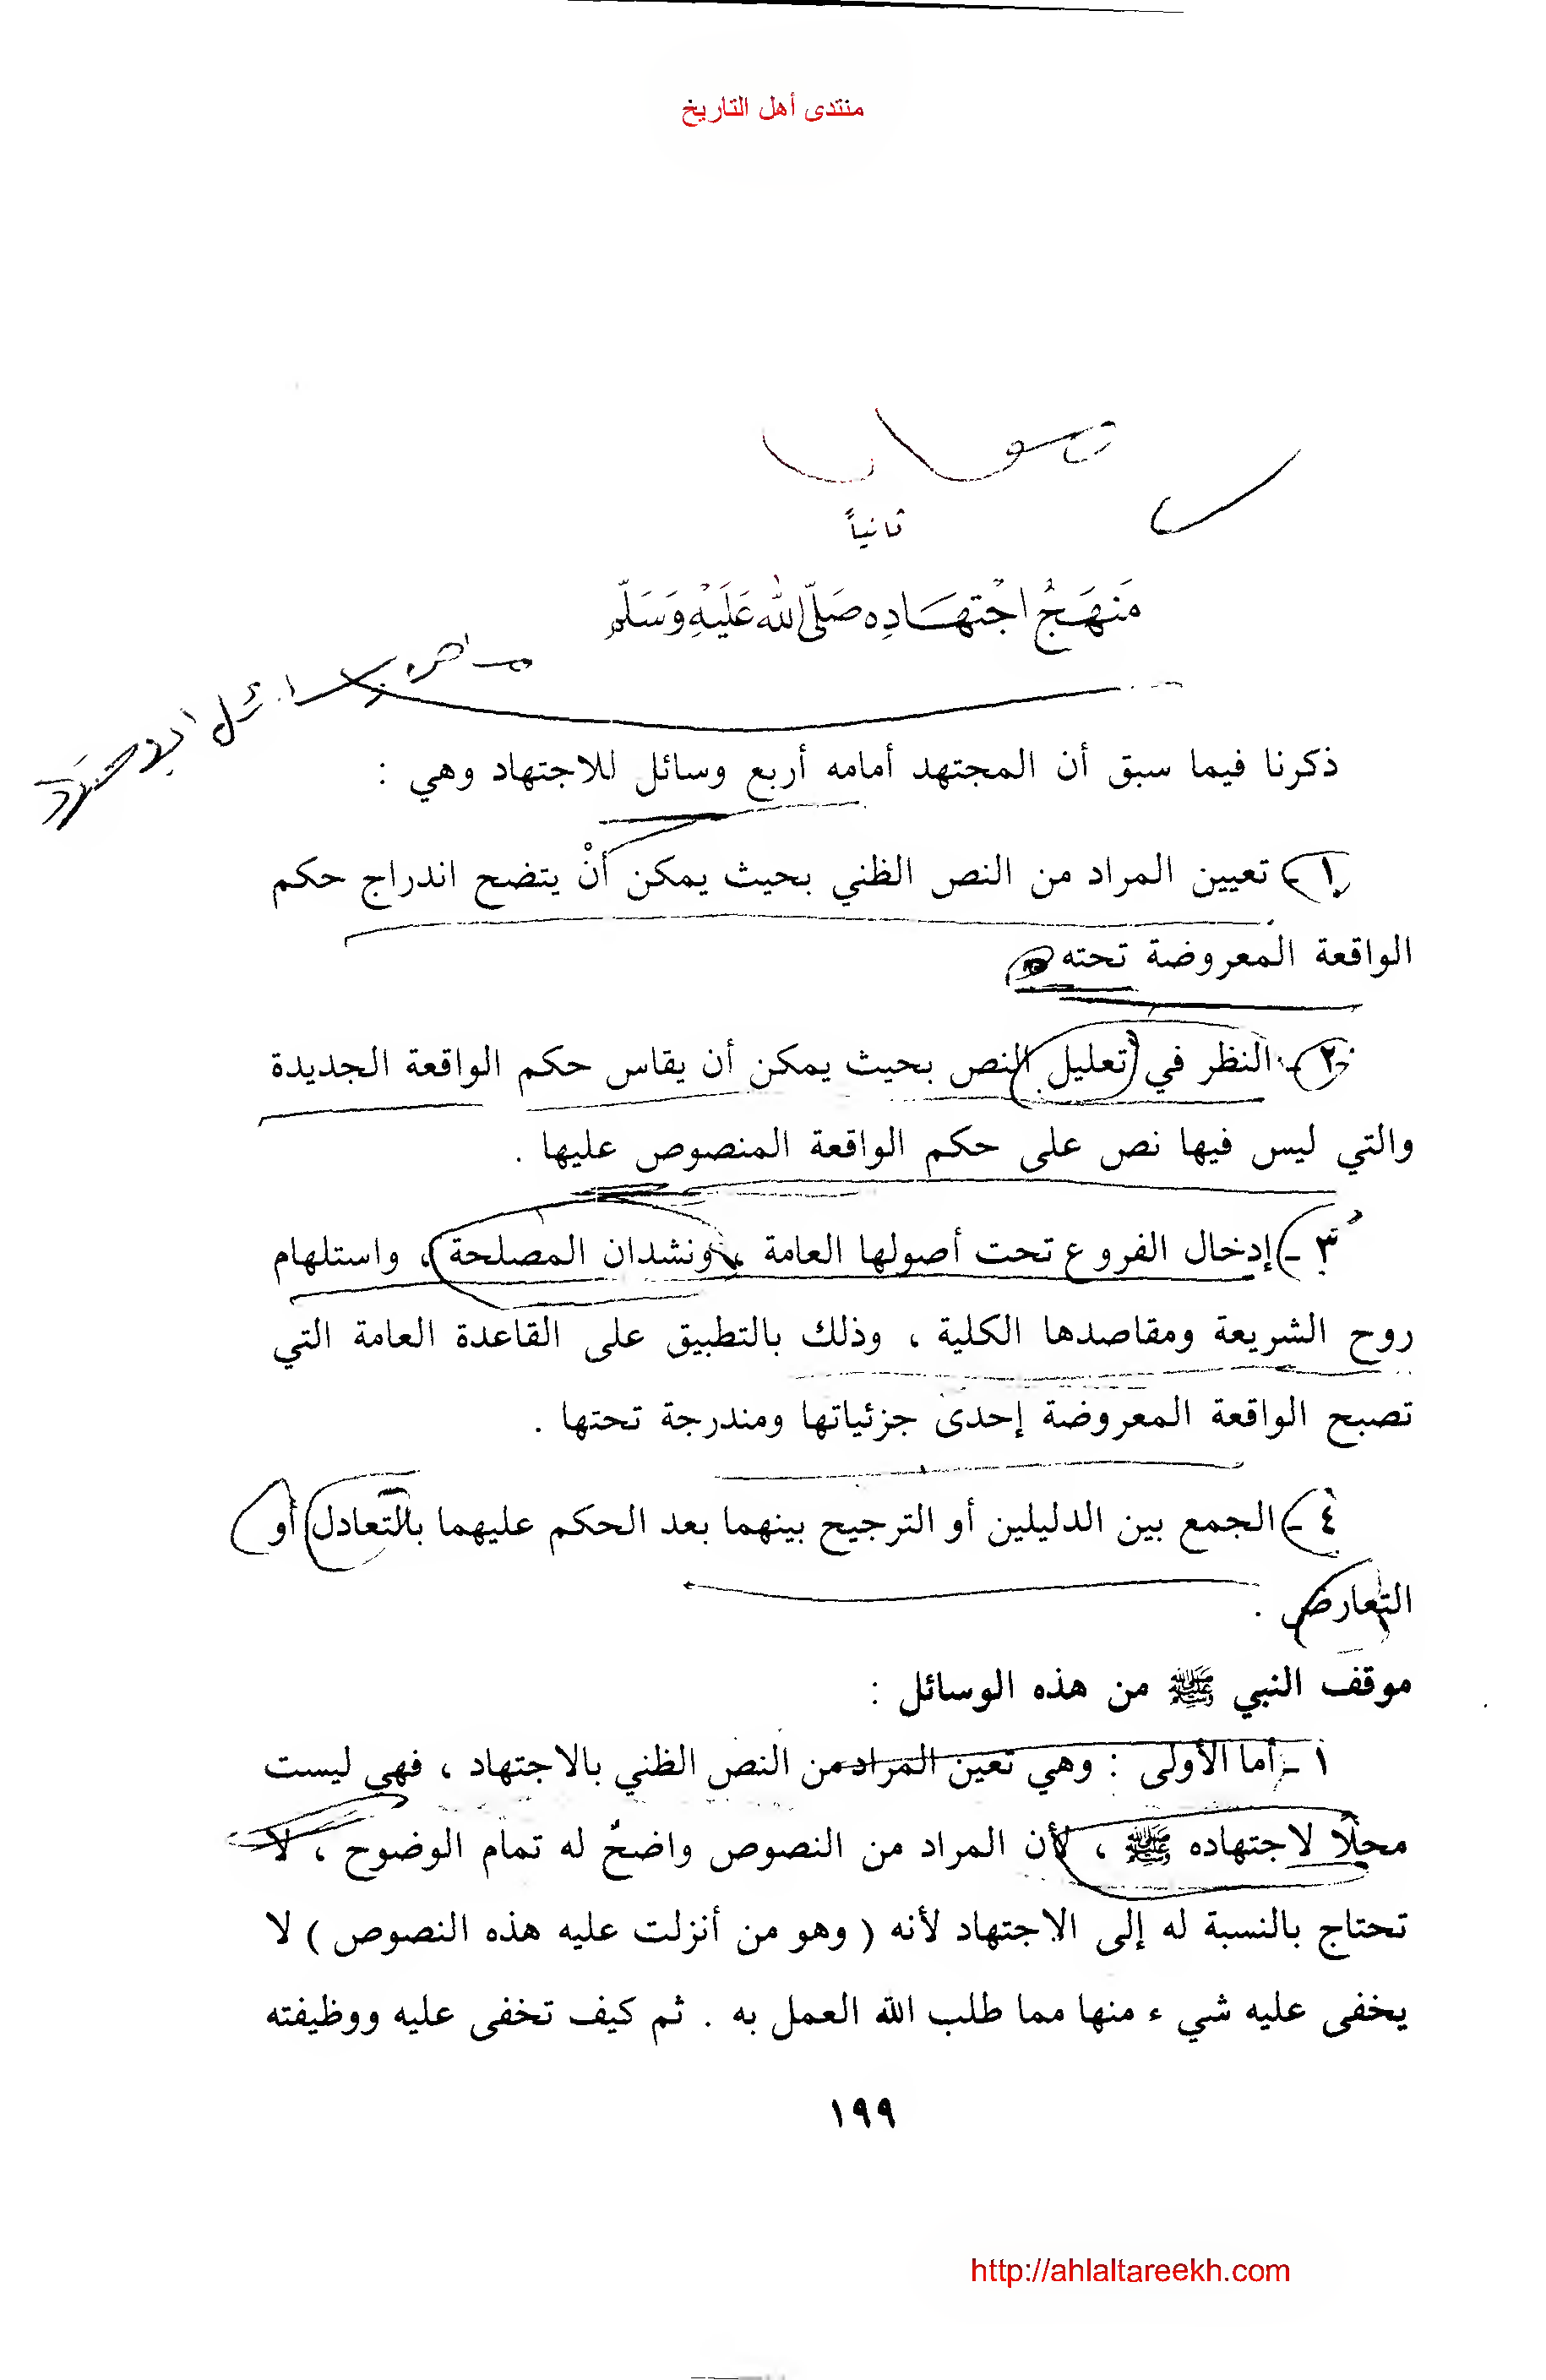 منتدى أهل التاريخ
ثانياً
مَنهَجُ اجْتهَادِه صَلَّى اللهُ عَلَيْهِ وَسَلَّم
ذكرنا فيما سبق أن المجتهد أمامه أربع وسائل للاجتهاد وهي :
١ - تعيين المراد من النص الظني بحيث يمكن أنْ يتضح اندراج حكم
الواقعة المعروضة تحته
٢ - النظر في تعليل النص بحيث يمكن أن يقاس حكم الواقعة الجديدة
والتي ليس فيها نص على حكم الواقعة المنصوص عليها .
٣ - إدخال الفروع تحت أصولها العامة ، ونشدان المصلحة ، واستلهام
روح الشريعة ومقاصدها الكلية ، وذلك بالتطبيق على القاعدة العامة التي
تصبح الواقعة المعروضة إحدى جزئياتها ومندرجة تحتها .
٤ - الجمع بين الدليلين أو الترجيح بينهما بعد الحكم عليهما بالتعادل أو
التعارض .
موقف النبي ﷺ من هذه الوسائل :
١ - أما الأولى : وهي تعين المراد من النص الظني بالاجتهاد ، فهي ليست
محلًا لاجتهاده ﷺ ، لأن المراد من النصوص واضحٌ له تمام الوضوح ، لا
تحتاج بالنسبة له إلى الاجتهاد لأنه ( وهو من أنزلت عليه هذه النصوص ) لا
يخفى عليه شيء منها مما طلب الله العمل به . ثم كيف تخفى عليه ووظيفته
١٩٩
http://ahlaltareekh.com